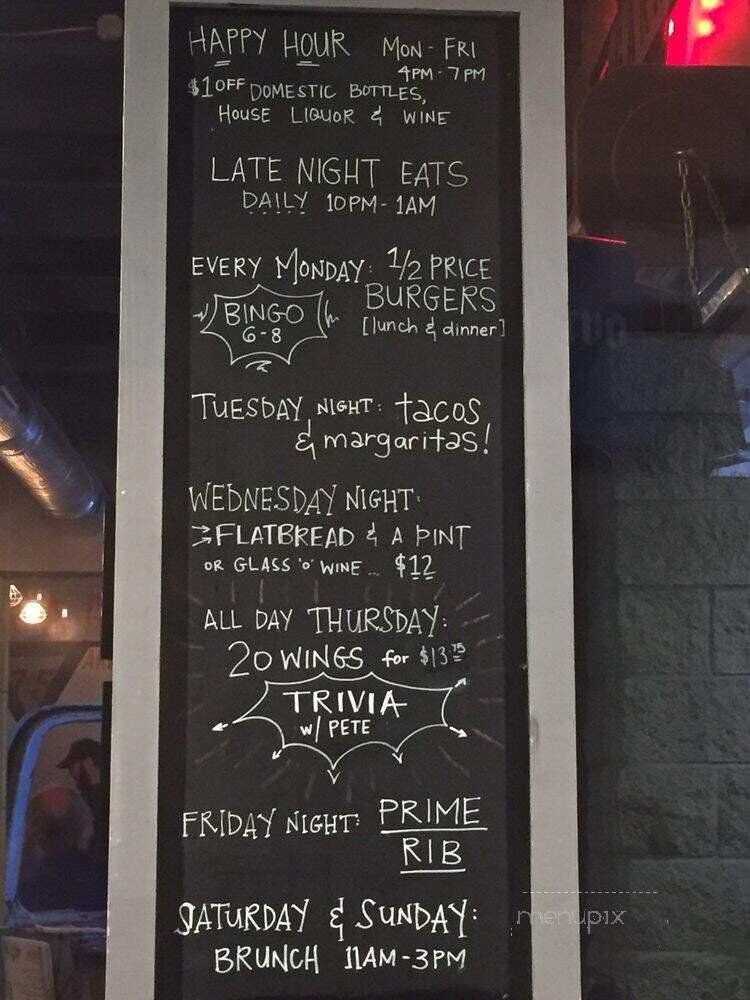 HAPPY HOUR MON - FRI
4PM - 7PM
$1 OFF DOMESTIC BOTTLES,
HOUSE LIQUOR & WINE
LATE NIGHT EATS
DAILY 10PM - 1AM
EVERY MONDAY: 1/2 PRICE
BURGERS
[lunch & dinner]
BINGO
6-8
TUESDAY NIGHT: tacos
& margaritas!
WEDNESDAY NIGHT:
FLATBREAD & A PINT
OR GLASS 'O' WINE ... $12
ALL DAY THURSDAY:
20 WINGS for $13.75
TRIVIA
w/ PETE
FRIDAY NIGHT: PRIME
RIB
SATURDAY & SUNDAY:
BRUNCH 11AM - 3PM
menupix